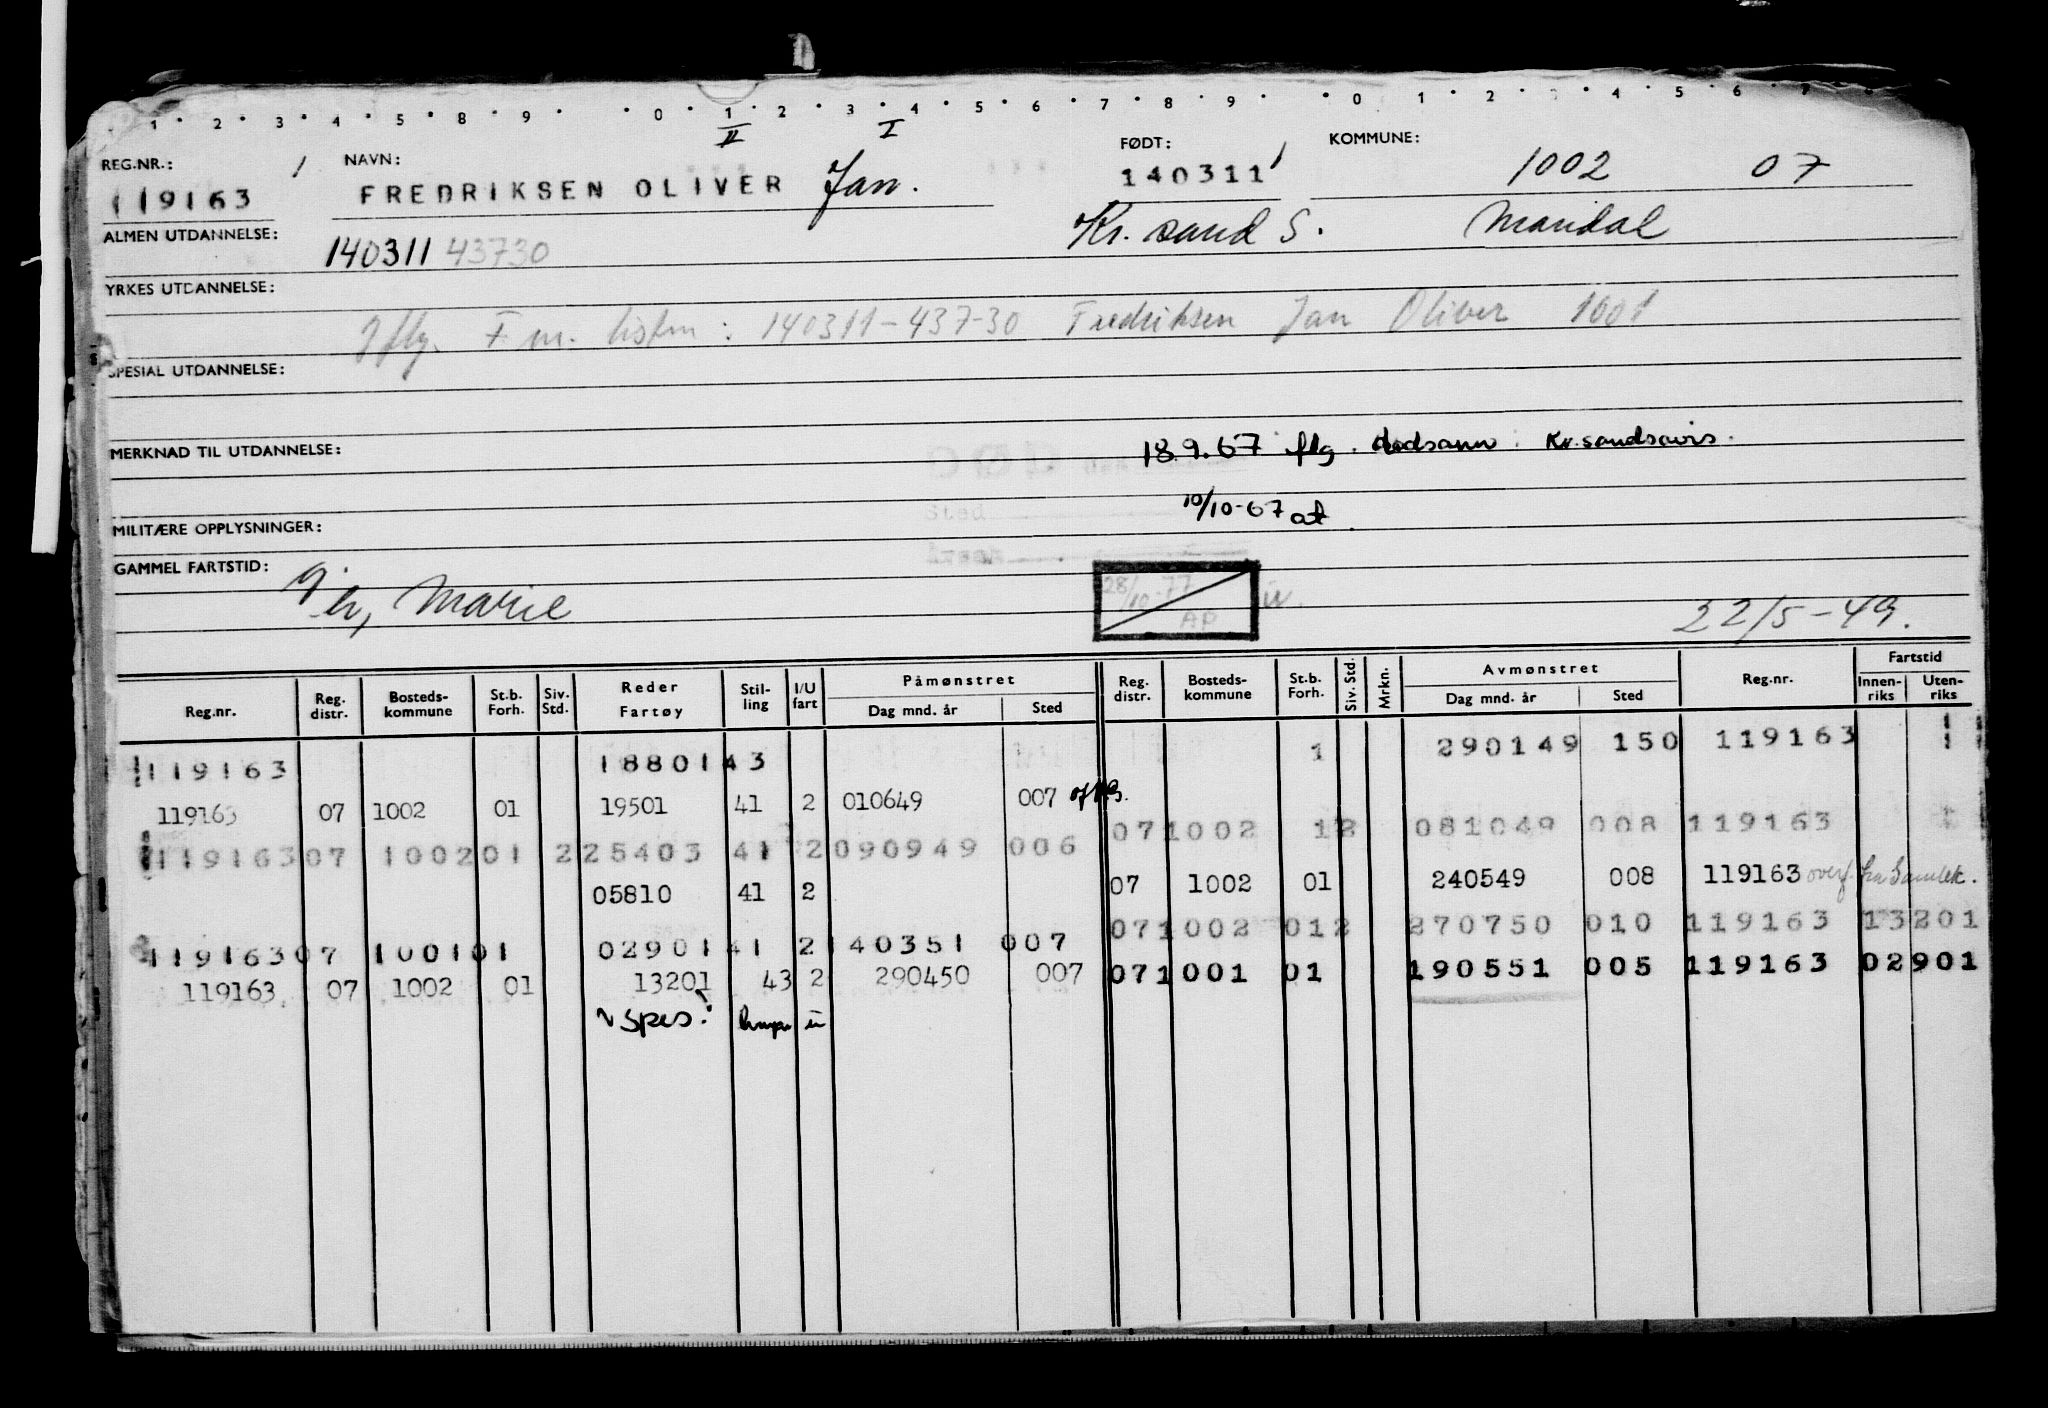 1 2 3 4 5 6 8 9 0 1 2 3 4 5 6 7 8 9 0 1 2 3 4 5 6 7
II I
REG.NR.: NAVN: FØDT: KOMMUNE:
119163 FREDRIKSEN OLIVER Jan. 140311 1002 07
ALMEN UTDANNELSE: 140311 43730 Kr. sand S. Mandal
YRKES UTDANNELSE:
Iflg. F.m. listen: 140311-437-30 Fredriksen Jan Oliver 1001
SPESIAL UTDANNELSE:
MERKNAD TIL UTDANNELSE: 18.9.67 iflg. dødsann. Kr.sandsavis.
10/10-67 at
MILITÆRE OPPLYSNINGER: Sted
GAMMEL FARTSTID:
Marie 28/10-77 AP 22/5-49.
Reg.nr. Reg. distr. Bosteds-kommune St.b. Forh. Siv. Std. Reder Fartøy Stil-ling I/U fart Påmønstret Dag mnd. år Sted Reg. distr. Bosteds-kommune St.b. Forh. Siv. Std. Mrkn. Avmønstret Dag mnd. år Sted Reg.nr. Fartstid Innen-riks Uten-riks
119163 1880143 1 290149 150 119163
119163 07 1002 01 19501 41 2 010649 007
071002 12 081049 008 119163
11916307 100201 225403 41 2090949 006
05810 41 2 07 1002 01 240549 008 119163 overf. fra Samlek.
071002 012 270750 010 119163 13201
11916307 100101 0290141 2140351 007
071001 01 190551 005 119163 02901
119163 07 1002 01 13201 43 2 290450 007
Spes.